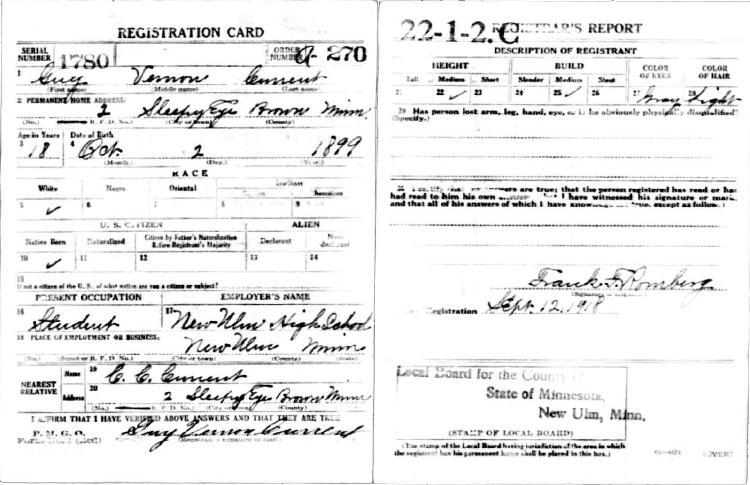 REGISTRATION CARD
SERIAL NUMBER 1780 ORDER NUMBER 270
1 Guy Vernon Current
(First name) (Middle name) (Last name)
2 PERMANENT HOME ADDRESS:
2 Sleepy Eye Brown Minn
(No.) R. F. D. No.) (City or town) (County)
Age in Years Date of Birth
3 18 4 Oct. 2 1899
(Month.) (Day.) (Year.)
RACE
White Negro Oriental
5 ✓ 6 7 9
U. S. CITIZEN ALIEN
Native Born Naturalized Citizen by Father's Naturalization Before Registrant's Majority Declarant
10 ✓ 11 12 13 14
15
If not a citizen of the U. S., of what nation are you a citizen or subject?
PRESENT OCCUPATION EMPLOYER'S NAME
16 Student 17 New Ulm High School
18 PLACE OF EMPLOYMENT OR BUSINESS:
New Ulm Minn
(No.) (Street or R. F. D. No.) (City or town) (County) (State)
NEAREST RELATIVE
Name 19 C. C. Current
Address 20 2 Sleepy Eye Brown Minn
(No.) R. F. D. No.) (City or town) (County)
I AFFIRM THAT I HAVE VERIFIED ABOVE ANSWERS AND THAT THEY ARE TRUE
P. M. G. O.
Guy Vernon Current
22-1-2. C REGISTRAR'S REPORT
DESCRIPTION OF REGISTRANT
HEIGHT BUILD COLOR OF EYES COLOR OF HAIR
Tall Medium Short Slender Medium Stout
21 22 ✓ 23 24 25 ✓ 26 27 Gray 28 Light
29 Has person lost arm, leg, hand, eye, or is he obviously physically disqualified?
(Specify.)
30 I certify that my answers are true; that the person registered has read or has
had read to him his own answers; that I have witnessed his signature or mark,
and that all of his answers of which I have knowledge are true, except as follows:
Frank F. Romberg
Registration Sept. 12, 1918
Local Board for the County of
State of Minnesota,
New Ulm, Minn.
(STAMP OF LOCAL BOARD)
(The stamp of the Local Board having jurisdiction of the area in which
the registrant has his permanent home shall be placed in this box.)
(OVER)